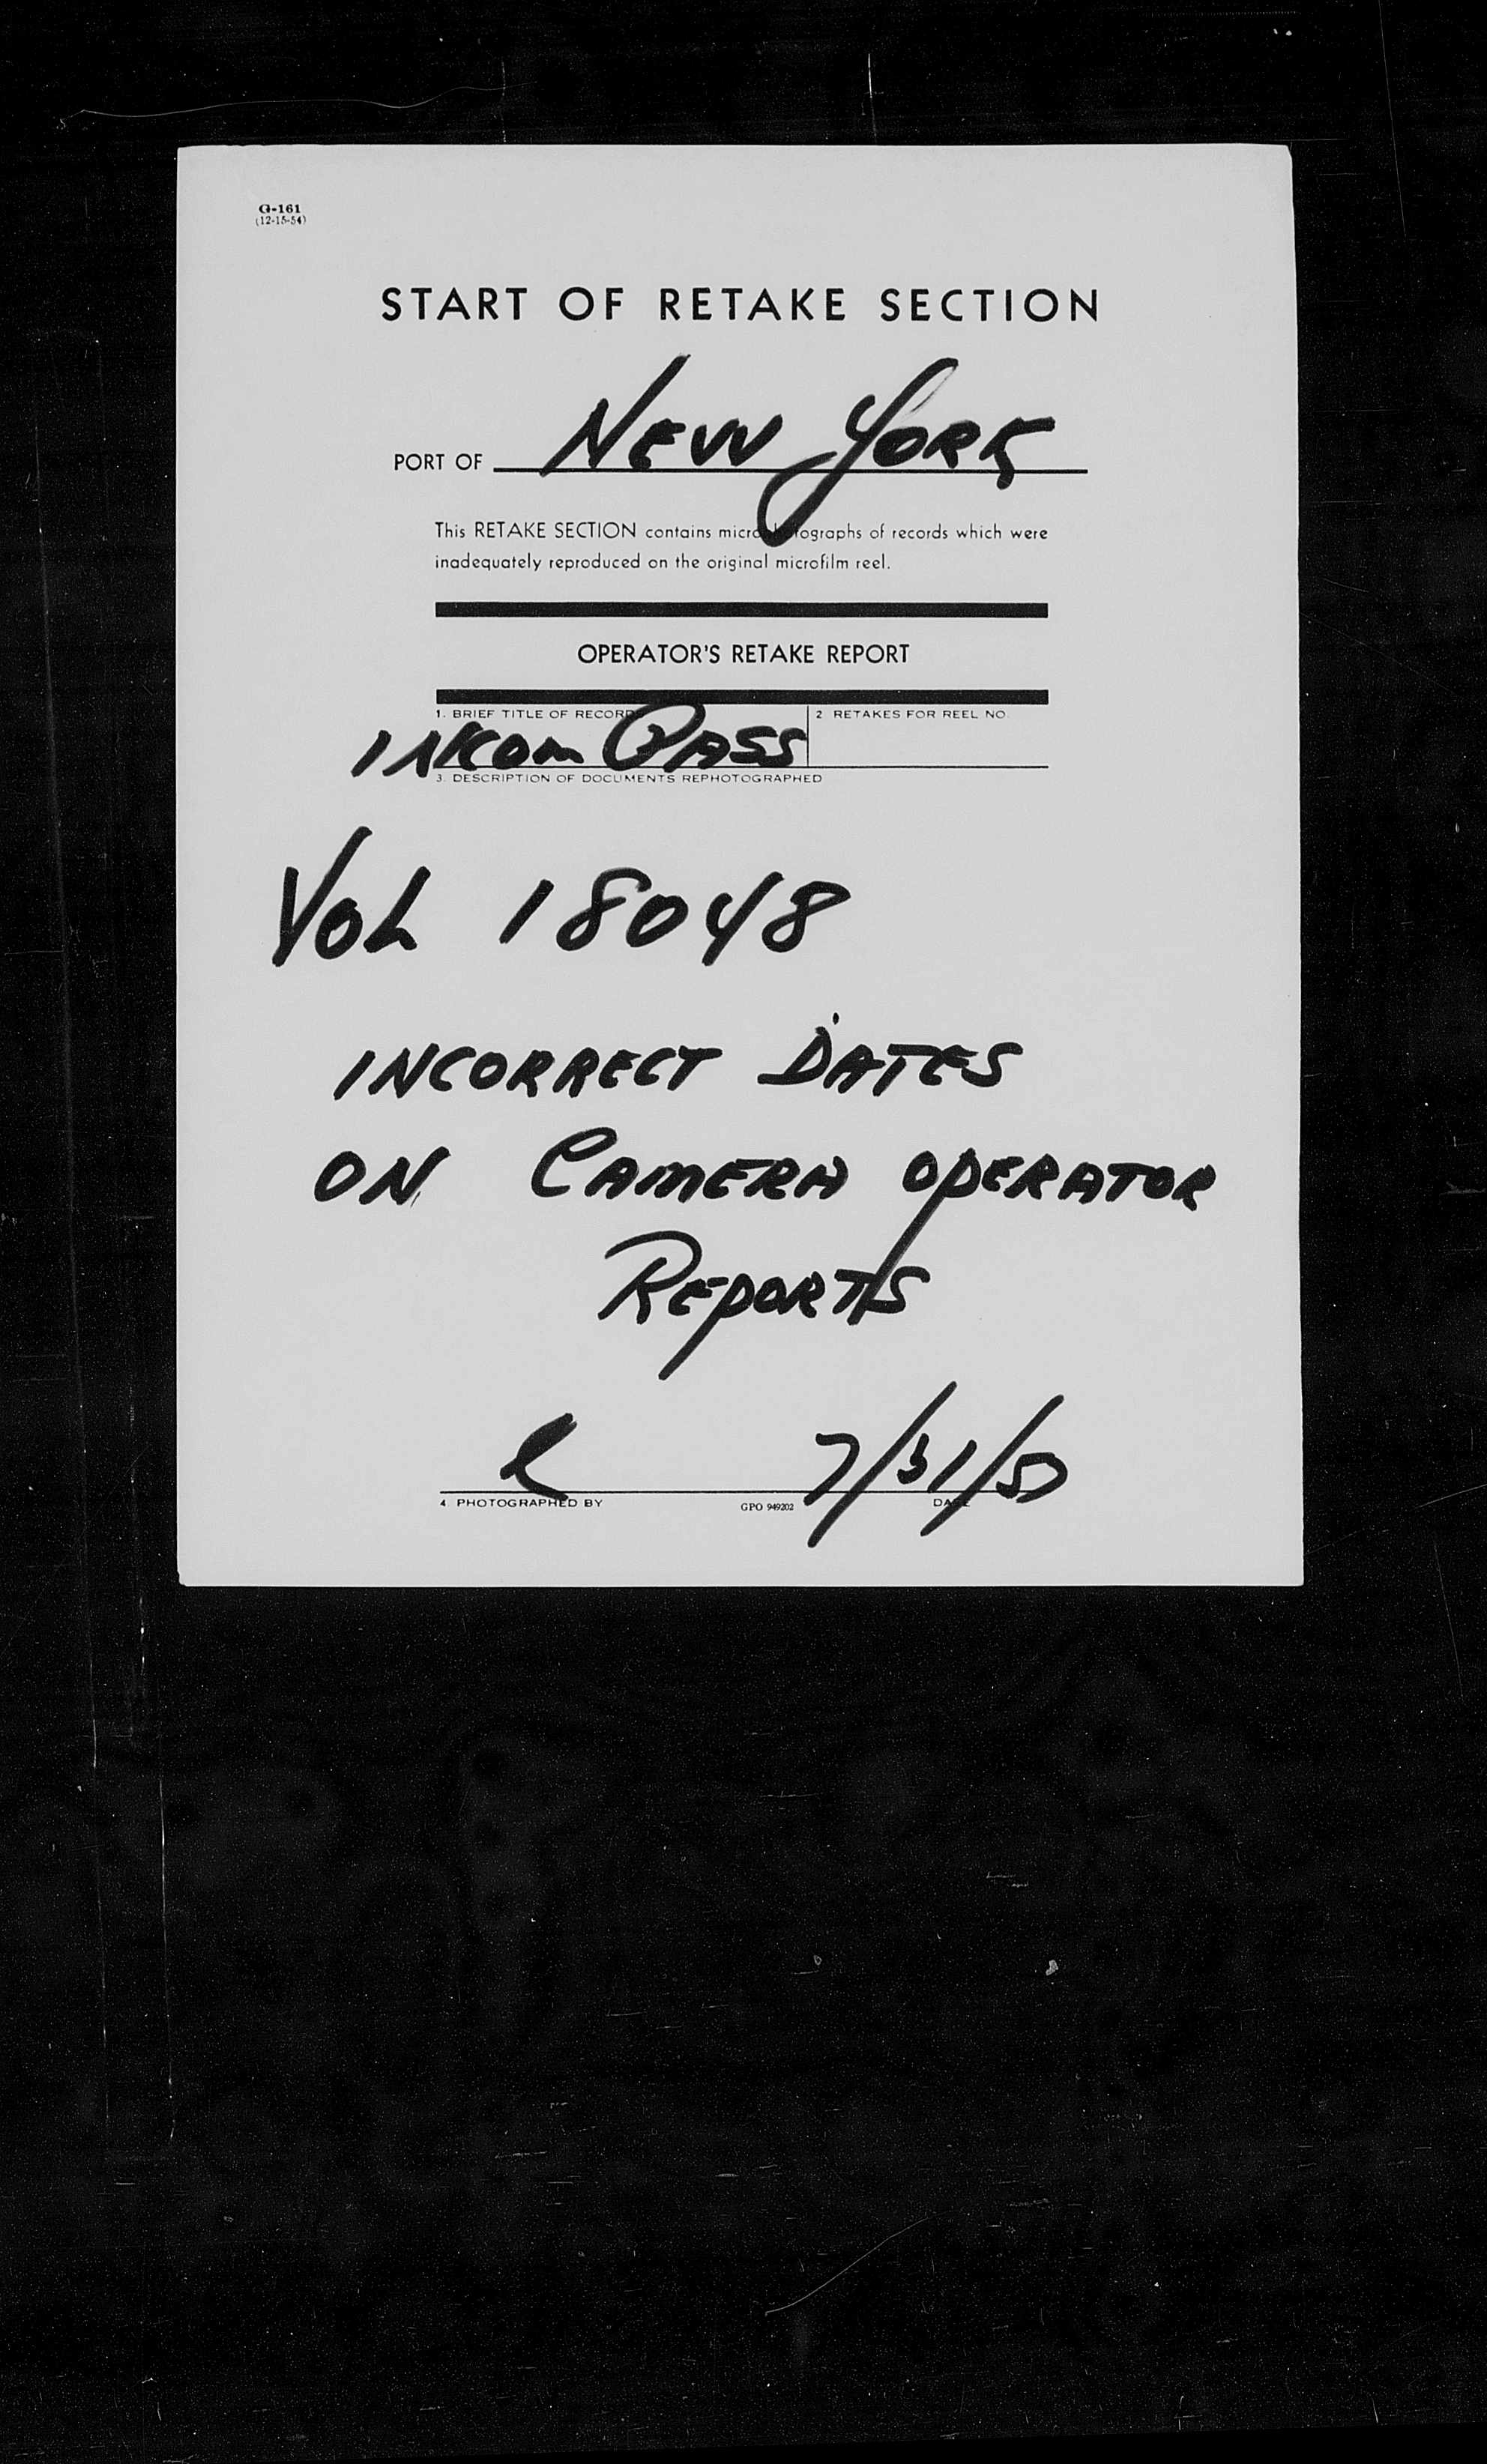 G-161
(12-15-54)
START OF RETAKE SECTION
PORT OF NEW YORK
This RETAKE SECTION contains of records which were
inadequately reproduced on the original microfilm reel.
OPERATOR'S RETAKE REPORT
1. BRIEF TITLE OF RECORDS 2 RETAKES FOR REEL NO.
INCOM PASS
3. DESCRIPTION OF DOCUMENTS REPHOTOGRAPHED
VOL 18048
INCORRECT DATES
ON CAMERA OPERATOR
REPORTS
7/31/57
4. PHOTOGRAPHED BY GPO 949202 DATE